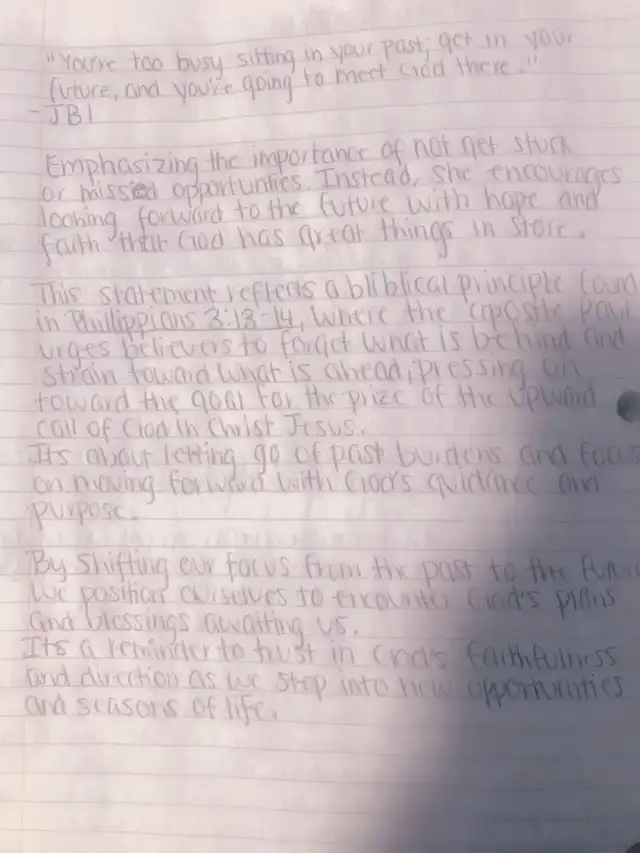 "You're too busy sitting in your past; get in your
future, and you're going to meet God there."
- JB1
Emphasizing the importance of not get stuck
or missed opportunties. Instead, she encourages
looking forward to the future with hope and
faith that God has great things in store.
This statement reflects a bliblical principle found
in Phillippians 3:13-14, where the apostle Paul
urges believers to forget what is behind and
strain toward what is ahead, pressing on
toward the goal for the prize of the upward
call of God in Christ Jesus.
Its about letting go of past burdens and focus
on moving forward with God's guidance and
purpose.
By shifting our focus from the past to the future
we position ourselves to encounter God's plans
and blessings awaiting us.
Its a reminder to trust in God's faithfulness
and direction as we step into new opportunities
and seasons of life.